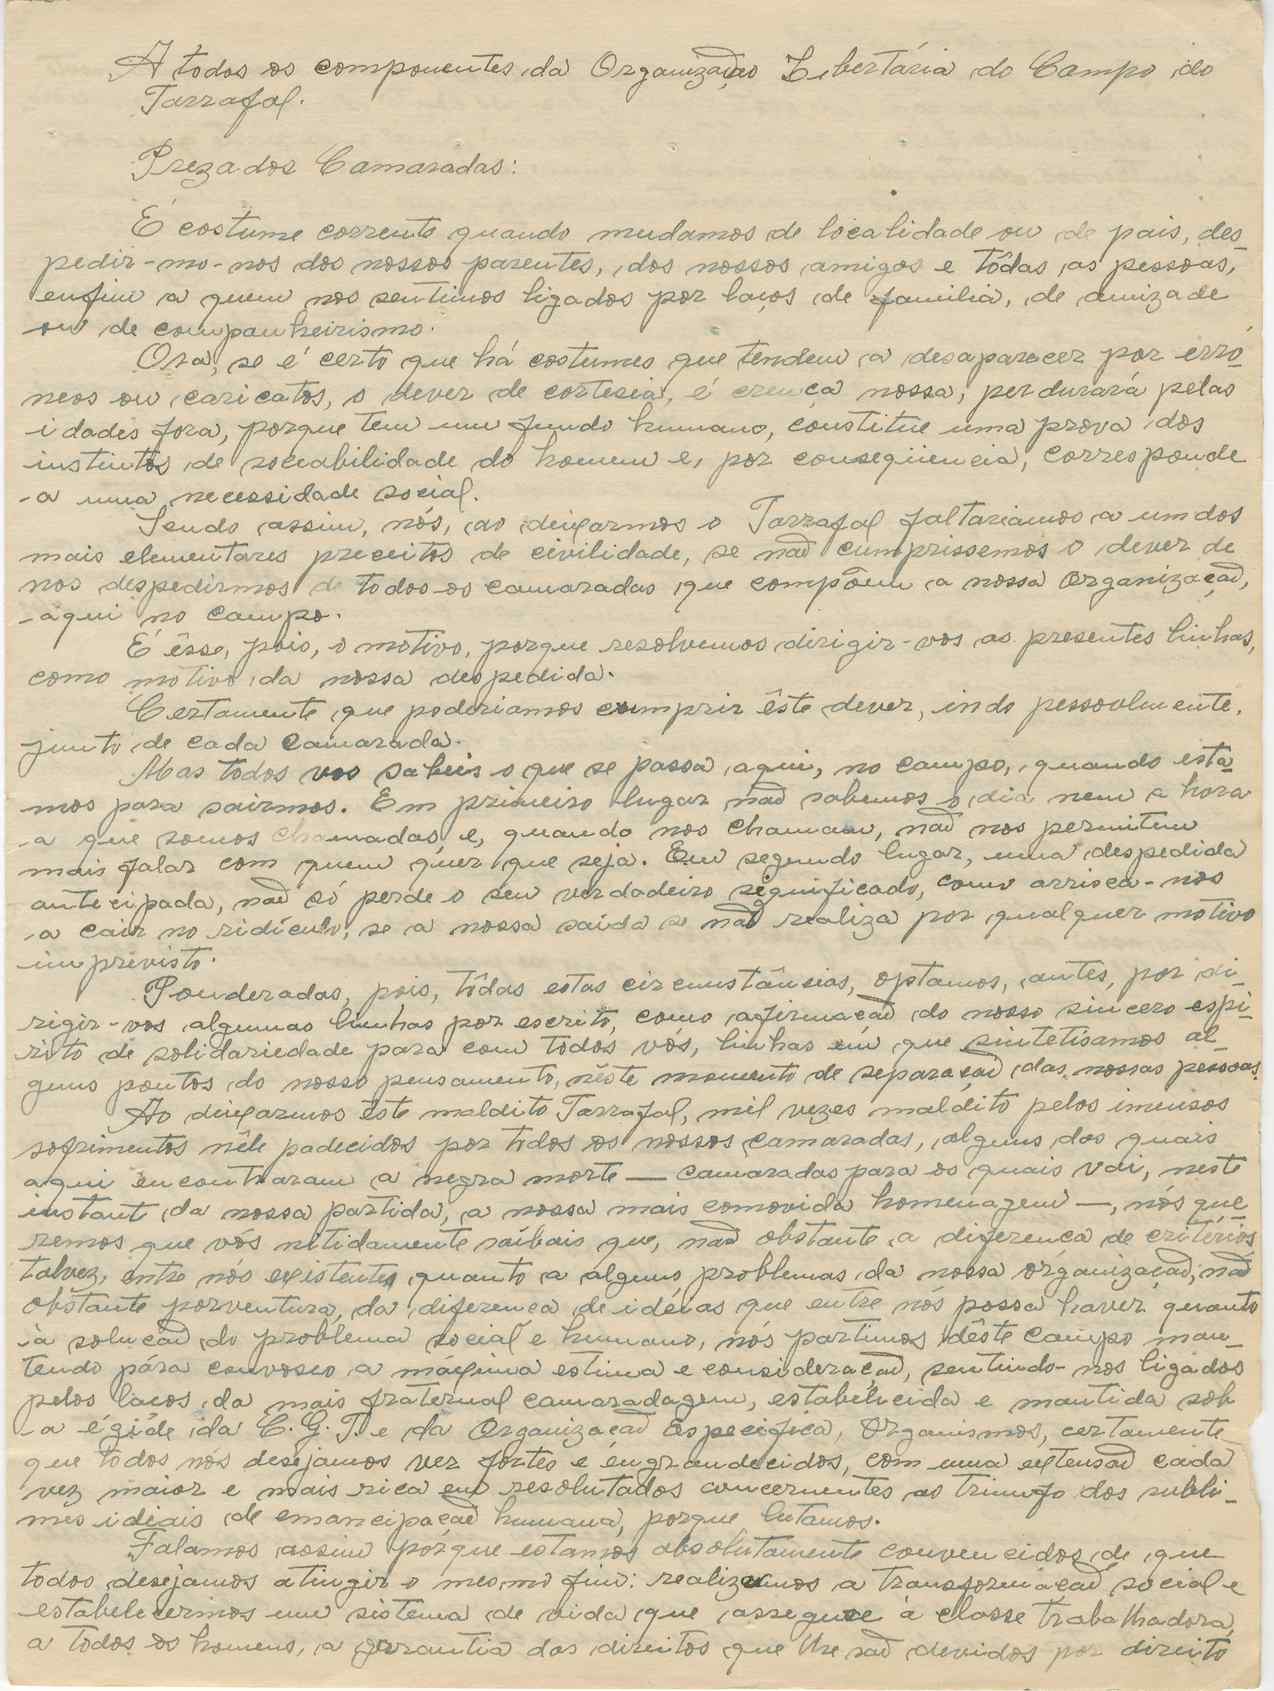 A todos os componentes da Organização Libertária do Campo do
Tarrafal.
Prezados Camaradas:
É costume corrente quando mudamos de localidade ou de pais, des-
pedir-mo-nos dos nossos parentes, dos nossos amigos e tôdas as pessoas,
enfim a quem nos sentimos ligados por laços de familia, de amizade
ou de companheirismo.
Ora, se é certo que há costumes que tendem a desaparecer por erró-
neos ou caricatos, o dever de cortesia, é crença nossa, perdurará pelas
idades fora, porque tem um fundo humano, constitue uma prova dos
instintos de sociabilidade do homem e, por conseqüencia, corresponde
a uma necessidade social.
Sendo assim, nós, ao deixarmos o Tarrafal faltariamos a um dos
mais elementares preceitos de civilidade, se não cumprissemos o dever de
nos despedirmos de todos os camaradas que compõem a nossa Organização,
aqui no campo.
É êsse, pois, o motivo, porque resolvemos dirigir-vos as presentes linhas,
como motivo da nossa despedida.
Certamente que poderiamos cumprir êste dever, indo pessoalmente,
junto de cada camarada.
Mas todos vos sabeis o que se passa aqui, no campo, quando esta-
mos para sairmos. Em primeiro lugar não sabemos o dia nem a hora
a que somos chamados, e, quando nos chamam, não nos permitem
mais falar com quem quer que seja. Em segundo lugar, uma despedida
antecipada, não só perde o seu verdadeiro significado, como arrisca-nos
a cair no ridículo, se a nossa saída se não realiza por qualquer motivo
imprevisto.
Ponderadas, pois, tôdas estas circunstâncias, optamos, antes, por di-
rigir-vos algumas linhas por escrito, como afirmação do nosso sincero espi-
rito de solidariedade para com todos vós, linhas em que sintetisamos al-
guns pontos do nosso pensamento, nêste momento de separação das nossas pessoas.
Ao deixarmos êste maldito Tarrafal, mil vezes maldito pelos imensos
sofrimentos nêle padecidos por todos os nossos camaradas, alguns dos quais
aqui encontraram a negra morte — camaradas para os quais vai, neste
instante da nossa partida, a nossa mais comovida homenagem —, nós que-
remos que vós nitidamente saíbais que, não obstante a diferença de critérios,
talvez, entre nós existentes quanto a alguns problemas da nossa órganização, não
obstante porventura, da diferença de idéias que entre nós possa haver quanto
à solução do problema social e humano, nós partimos dêste campo man-
tendo para convosco a maxima estima e consideração, sentindo-nos ligados
pelos laços da mais fraternal camaradagem, estabelecida e mantida sob
a égide da C.G.T. e da Organização Especifica, Organismos, certamente
que todos nós desejamos ver fortes e engrandecidos, com uma extensão cada
vez maior e mais rica em resolutados concernentes ao triunfo dos subli-
mes ideais de emancipação humana, porque lutamos.
Falamos assim porque estamos absolutamente convencidos de que
todos desejamos atingir o mesmo fim: realizarmos a transformação social e
estabelecermos um sistema de vida que assegure à classe trabalhadora,
a todos os homens, a garantia dos direitos que lhe são devidos por direito